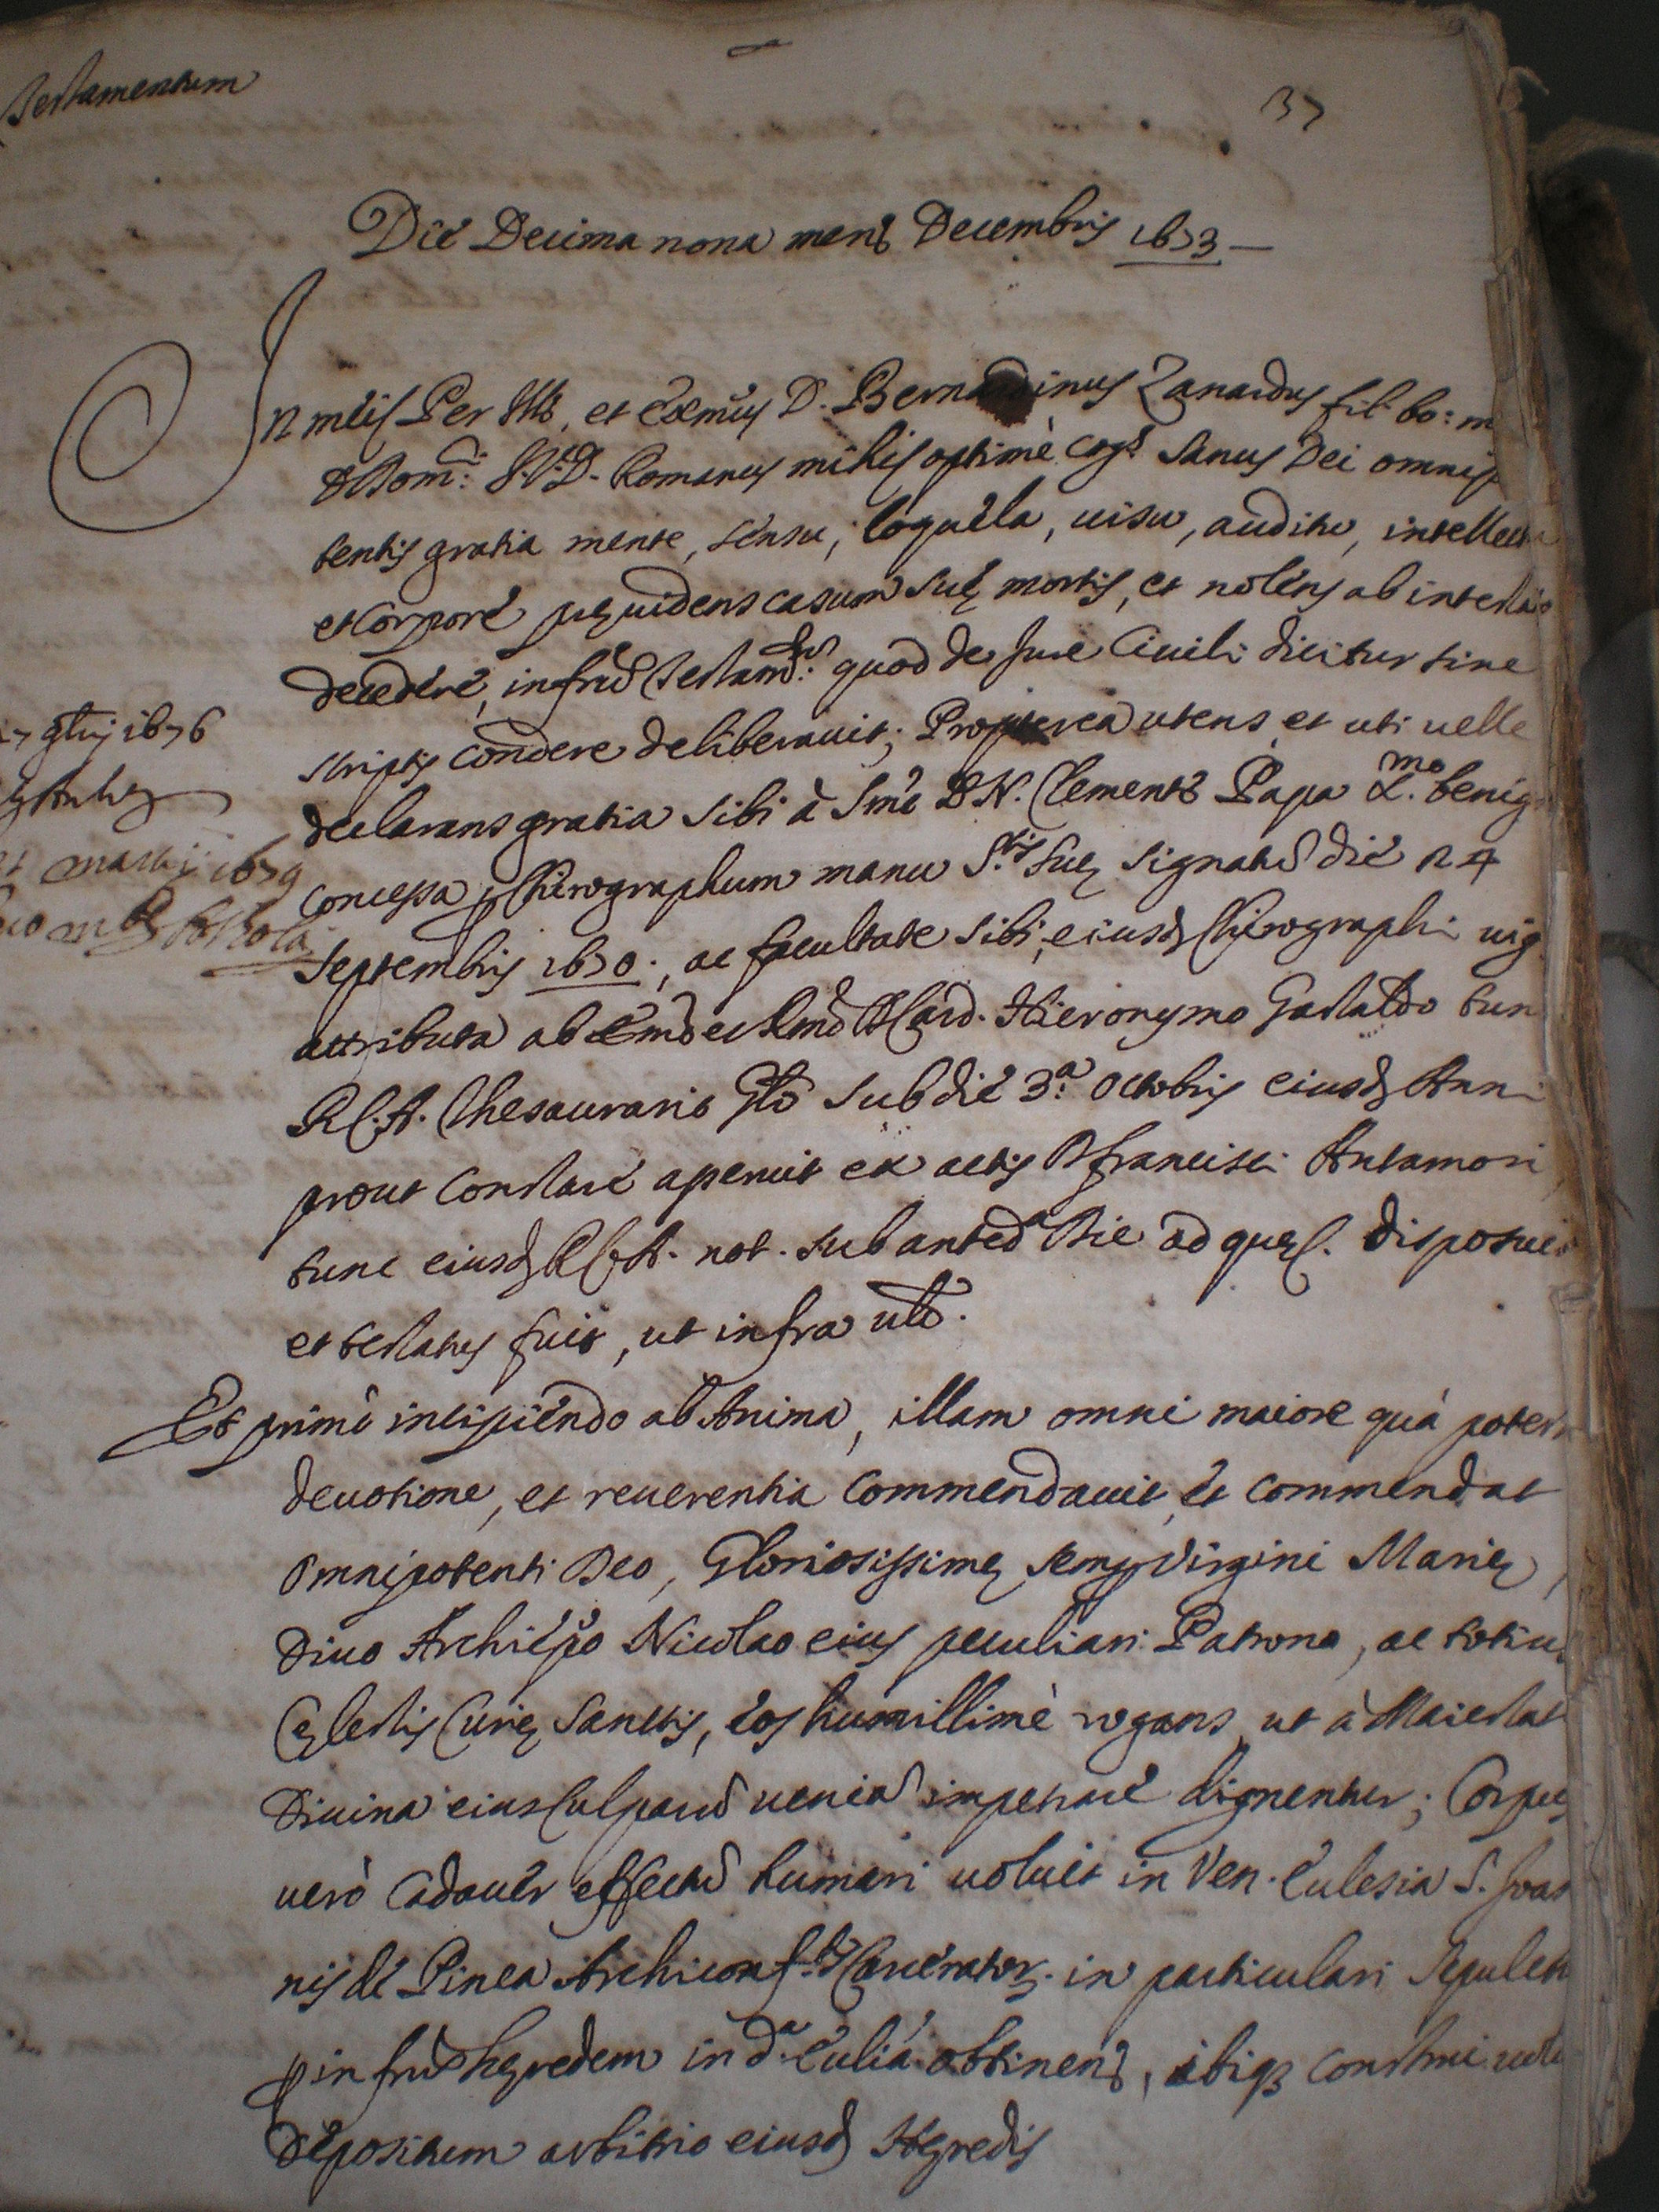 Testamentum
37
Die Decima nona mens Decembris 1673
In mei Per Ill, et Exmus D. Bernardinus Zanardus fil. bo: m
J.V.D. Romanus mihi optimè cog. sanus Dei omnip
tentis gratia mente, sensu, loquela, uisu, auditu, intellectu
et corpore pręuidens casum suę mortis, et nolens ab intestato
decedere, infrm testamm quod de Jure Ciuili dicitur sine
scriptis condere deliberauit; Propterea utens et uti uelle
declarans gratia sibi à Smo D.N. Clemente Papa X.mo benig
concessa p Chirographum manu S.tis Suę signatm die 24
Septembris 1670., ac facultate sibi, eiusd Chirographi uig
attributa ab Emo et Rmo D. Card. Hieronymo Gastaldo tun
R.C.A. Thesaurario Glo sub die 3.a Octobris eiusd Anni
prout constare aperuit ex actis D. Francisci Antamori
tunc eiusd R.C.A. not. sub anted.a Die ad quę. disposuit
et testatus fuit, ut infra ulr.
Et primò incipiendo ab Anima, illam omni maiore quà potest
deuotione, et reuerentia commendauit, et commendat
Omnipotenti Deo, Gloriosissimę semp Virgini Marię,
Diuo Archiepo Nicolao eius peculiari Patrono, ac totius
Cęlestis Curię Sanctis, eos humillimè rogans, ut à Maiestat
Diuina eius culparm ueniam impetrare dignentur; Corpus
uerò cadauer effectm humari uoluit in Ven. Ecclesia S. Joan
nis de Pinea Archiconf.tis Carceratorm. in particulari sepulch
p infrm hęredem in d.a Ecclia obtinend, ibiq3 construi uolu
Depositum arbitrio eiusd Hęredis
1676
martii 1679